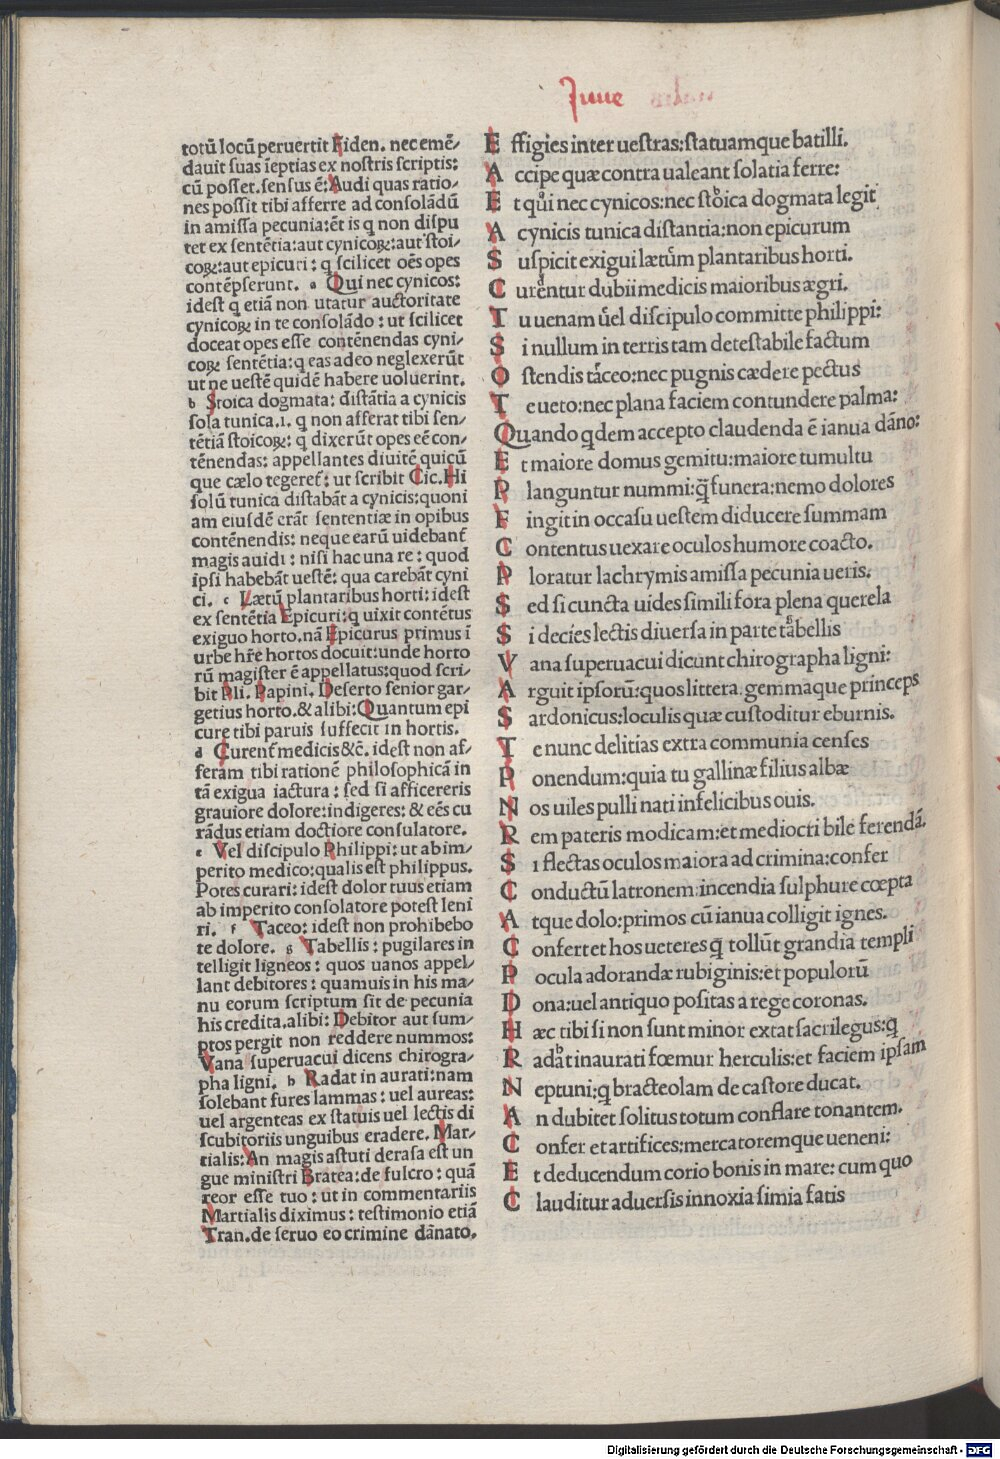 Iuue
totū locū peruertit Fiden. nec emē/
dauit suas īeptias ex nostris scriptis:
cū posset. sensus ē: Audi quas ratio/
nes possit tibi afferre ad consolādū
in amissa pecunia: ēt is q non dispu
tet ex sentētia: aut cynicoꝝ: aut stoi/
coꝝ: aut epicuri: q scilicet oēs opes
contēpserunt. a Qui nec cynicos:
idest q etiā non utatur auctoritate
cynicoꝝ in te consolādo: ut scilicet
doceat opes esse contēnendas cyni/
coꝝ sentētia: q eas adeo neglexerūt
ut ne uestē quidē habere uoluerint.
b Stoica dogmata: distātia a cynicis
sola tunica. i. q non afferat tibi sen/
tētiā stoicoꝝ: q dixerūt opes eē con/
tēnendas: appellantes diuitē quicū
que cælo tegeret̄: ut scribit Cic. Hi
solū tunica distabāt a cynicis: quoni
am eiusdē erāt sententiæ in opibus
contēnendis: neque earū uidebant̄
magis auidi: nisi hac una re: quod
ipsi habebāt uestē: qua carebāt cyni
ci. c Lætū plantaribus horti: idest
ex sentētia Epicuri: q uixit contētus
exiguo horto. nā Epicurus primus ī
urbe hr̄e hortos docuit: unde horto
rū magister ē appellatus: quod scri/
bit Pli. Papini. Deserto senior gar/
getius horto. & alibi: Quantum epi
cure tibi paruis suffecit in hortis.
d Curent̄ medicis &c̄. idest non af/
feram tibi rationē philosophicā in
tā exigua iactura: sed si afficereris
grauiore dolore: indigeres: & eēs cu
rādus etiam doctiore consulatore.
e Vel discipulo Philippi: ut ab im/
perito medico: qualis est philippus.
Potes curari: idest dolor tuus etiam
ab imperito consolatore potest leni
ri. f Taceo: idest non prohibebo
te dolore. g Tabellis: pugilares in
telligit ligneos: quos uanos appel/
lant debitores: quamuis in his ma/
nu eorum scriptum sit de pecunia
his credita. alibi: Debitor aut sum/
ptos pergit non reddere nummos:
Vana superuacui dicens chirogra/
pha ligni. h Radat in aurati: nam
solebant fures lammas: uel aureas:
uel argenteas ex statuis uel lectis di
scubitoriis unguibus eradere. Mar/
tialis: An magis astuti derasa est un
gue ministri Bratea: de fulcro: quā
reor esse tuo: ut in commentariis
Martialis diximus: testimonio etiā
Tran. de seruo eo crimine dānato.
E ffigies inter uestras: statuamque batilli.
A ccipe quæ contra ualeant solatia ferre:
E t qui nec cynicos: nec stoica dogmata legit
A cynicis tunica distantia: non epicurum
S uspicit exigui lætum plantaribus horti.
C urentur dubii medicis maioribus ægri.
T u uenam uel discipulo committe philippi:
S i nullum in terris tam detestabile factum
O stendis taceo: nec pugnis cædere pectus
T e ueto: nec plana faciem contundere palma:
Quando qdem accepto claudenda ē ianua dāno:
E t maiore domus gemitu: maiore tumultu
P languntur nummi: q̄ funera: nemo dolores
F ingit in occasu uestem diducere summam
C ontentus uexare oculos humore coacto.
P loratur lachrymis amissa pecunia ueris.
S ed si cuncta uides simili fora plena querela
S i decies lectis diuersa in parte tabellis
V ana superuacui dicunt chirographa ligni:
A rguit ipsorū: quos littera. gemmaque princeps
S ardonicus: loculis quæ custoditur eburnis.
T e nunc delitias extra communia censes
P onendum: quia tu gallinæ filius albæ
N os uiles pulli nati infelicibus ouis.
R em pateris modicam: et mediocri bile ferendā.
S i flectas oculos maiora ad crimina: confer
C onductū latronem: incendia sulphure cœpta
A tque dolo: primos cū ianua colligit ignes.
C onfer et hos ueteres q̄ tollūt grandia templi
P ocula adorandæ rubiginis: et populorū
D ona: uel antiquo positas a rege coronas.
H æc tibi si non sunt minor extat sacrilegus: q
R adat inaurati fœmur herculis: et faciem ipsam
N eptuni: q bracteolam de castore ducat.
A n dubitet solitus totum conflare tonantem.
C onfer et artifices: mercatoremque ueneni:
E t deducendum corio bonis in mare: cum quo
C lauditur aduersis innoxia simia fatis
Digitalisierung gefördert durch die Deutsche Forschungsgemeinschaft - DFG